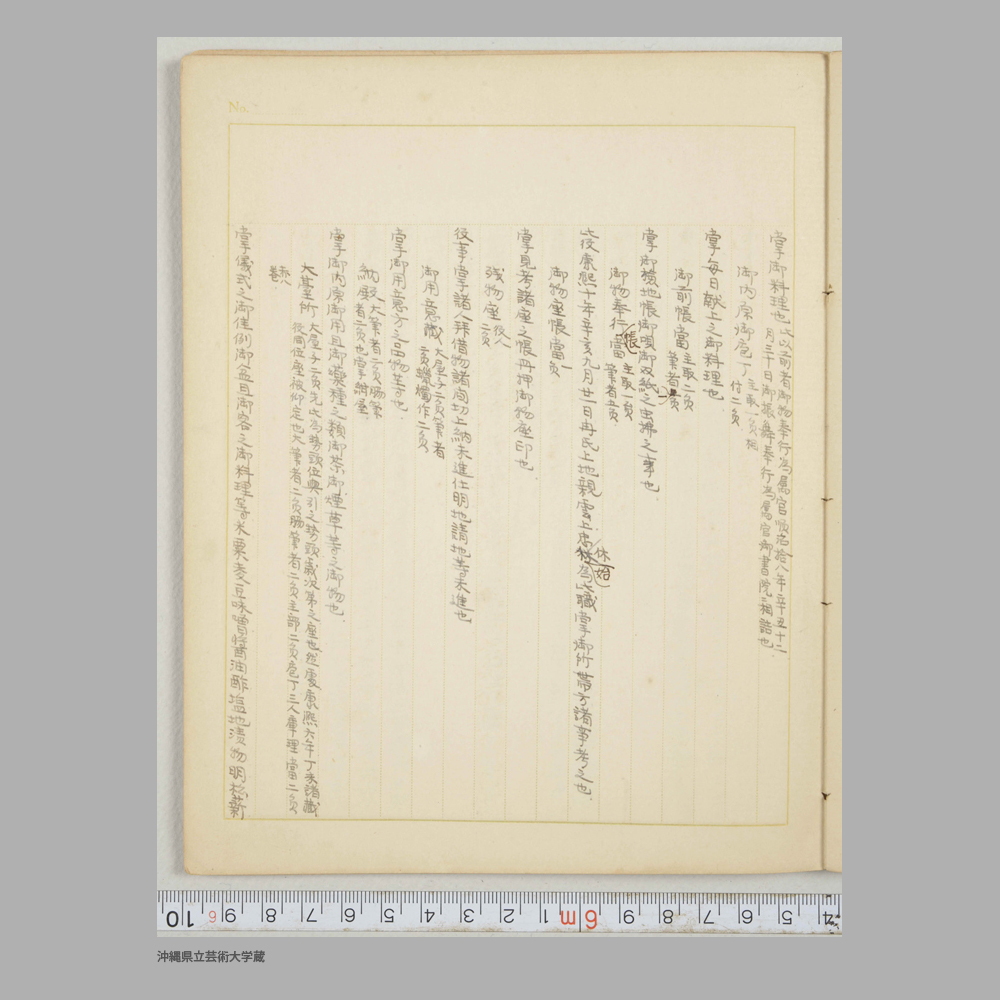 掌御料理也 此以前者御物奉行為属官順治拾八年辛丑十二
月三十日御振舞奉行為属官御書院ニ相詰也
御内原御庖丁 主取一負
付二負
掌毎日献上之御料理也
御前帳當 主取二負
筆者負
掌御検地帳御唄御双紙之出掃之事也
御物奉行帳當 主取一負
筆者五負
此役康熙十年辛亥九月廿一日毎氏上地親雲上忠休始為此職掌御所帯方諸事考之也
御物座帳當 一負
掌見考諸座之帳冊押御物座印也
残物座 役人
二負
役事掌諸人拜借物諸向切上納未進仕明地請地等未進也
御用意蔵 大屋子二負筆者
二負蠟燭作二負
掌御用意方之品物等也
納殿 大筆者二負脇筆
者二負也掌紺屋
掌御内原御用且御薬種之類御茶御煙草等之御物也
大臺所 大屋子二負先此為勢頭位與引之勢頭蔵次第之座也然處康熙六年丁未諸蔵
役同位座被仰定也大筆者二負脇筆者二負主部二負庖丁三人庫理當二負
赤八
巻
掌儀式之御佳例御盆且御客之御料理等米粟麦豆味噌醤油酢塩地漬物明松薪
No.
10 6 9 8 7 6 5 4 3 2 1 m 6 9 8 7 6 5 4
沖縄県立芸術大学蔵